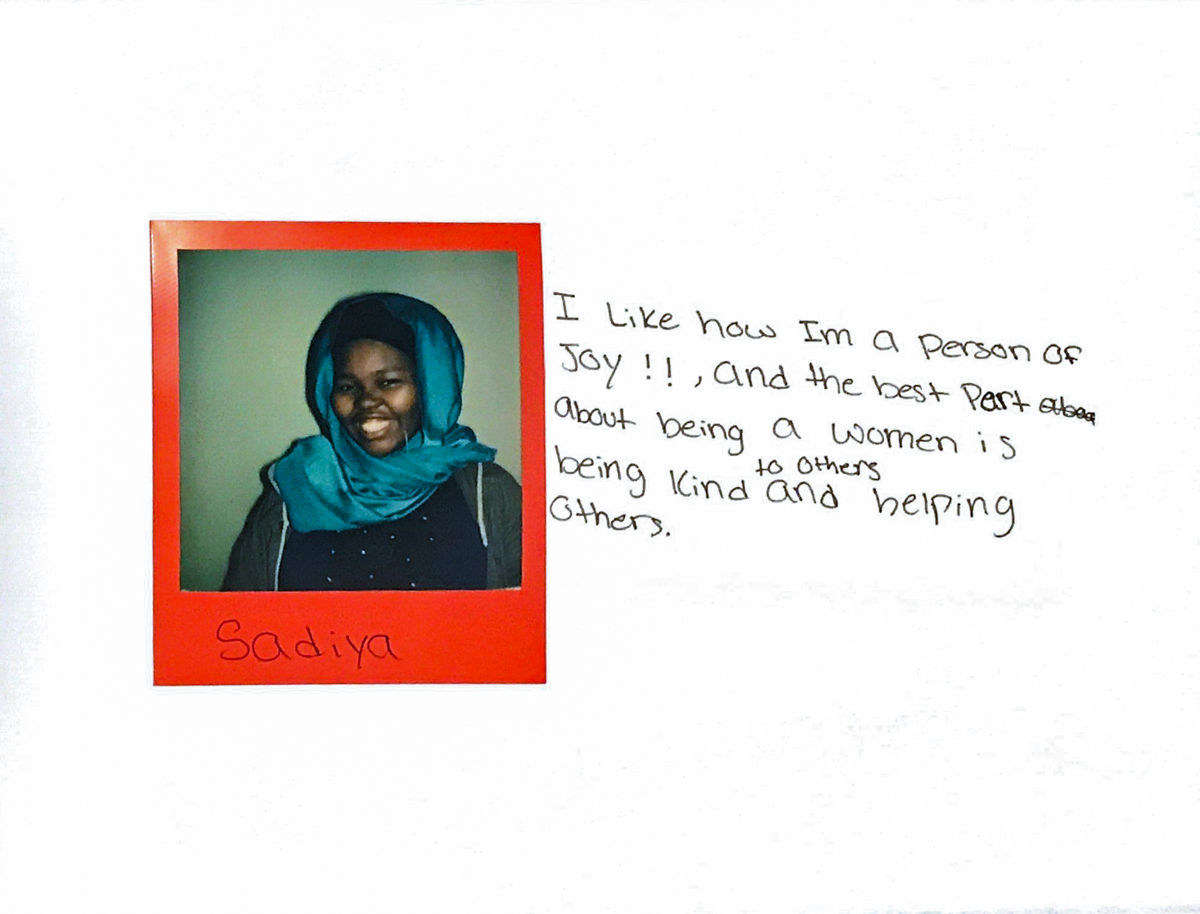 I Like how Im a person of
Joy !! , and the best Part
about being a women is
to others
being kind and helping
others.
Sadiya